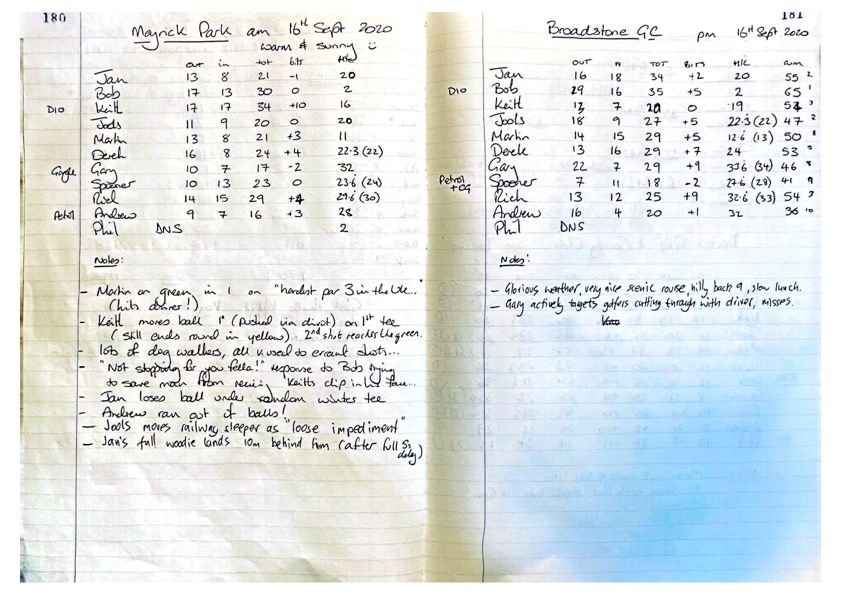 180
Mayrick Park am 16th Sept 2020
warm & sunny
out in tot bits H/C
Jan 13 8 21 -1 20
Bob 17 13 30 0 2
D10 Keith 17 17 34 +10 16
Jools 11 9 20 0 20
Martin 13 8 21 +3 11
Derek 16 8 24 +4 22.3 (22)
Google Gary 10 7 17 -2 32
Spooner 10 13 23 0 23.6 (24)
Rich 14 15 29 +4 29.6 (30)
Petrol Andrew 9 7 16 +3 28
Phil DNS 2
Notes:
- Martin on green in 1 on "hardest par 3 in the UK..."
(hits driver!)
- Keith moves ball 1" (pushed via divot) on 1st tee
(still ends round in yellow). 2nd shot reaches the green.
- lots of dog walkers, all used to errant shots...
- "Not stopping for you fella!" response to Bob trying
to save man from Keith's chip in his face...
- Jan loses ball under random winter tee
- Andrew ran out of balls!
- Jools moves railway sleeper as "loose impediment"
- Jan's full woodie lands 10m behind him (after full 5s
delay)
181
Broadstone GC pm 16th Sept 2020
OUT IN TOT BITS H/C
Jan 16 18 34 +2 20 55 2
D10 Bob 29 16 35 +5 2 65 1
Keith 13 7 20 0 19 54 3
Jools 18 9 27 +5 22.3 (22) 47
Martin 14 15 29 +5 12.6 (13) 50
Derek 13 16 29 +7 24 53
Gary 22 7 29 +9 33.6 (34) 46 8
Petrol Spooner 7 11 18 -2 27.6 (28) 41 9
+OG Rich 13 12 25 +9 32.6 (33) 54 3
Andrew 16 4 20 +1 32 36 10
Phil DNS
Notes:
- Glorious weather, very nice scenic course, hilly back 9, slow lunch.
- Gary actively targets golfers cutting through with driver, misses.